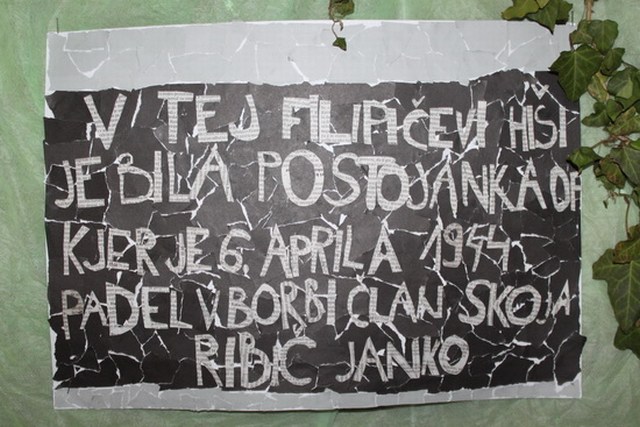 V TEJ FILIPIČEVI HIŠI
JE BILA POSTOJANKA OF
KJER JE 6. APRILA 1944
PADEL V BORBI ČLAN SKOJA
RIBIČ JANKO